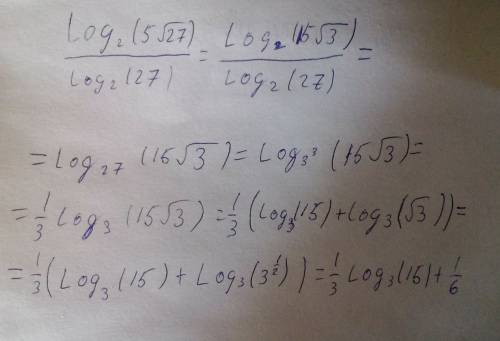 Log₂(5√27)/Log₂(27) = Log₂(15√3)/Log₂(27) =
= Log₂₇(15√3) = Log₃³(15√3) =
= 1/3 Log₃(15√3) = 1/3(Log₃(15) + Log₃(√3)) =
= 1/3(Log₃(15) + Log₃(3^(1/2))) = 1/3 Log₃(15) + 1/6